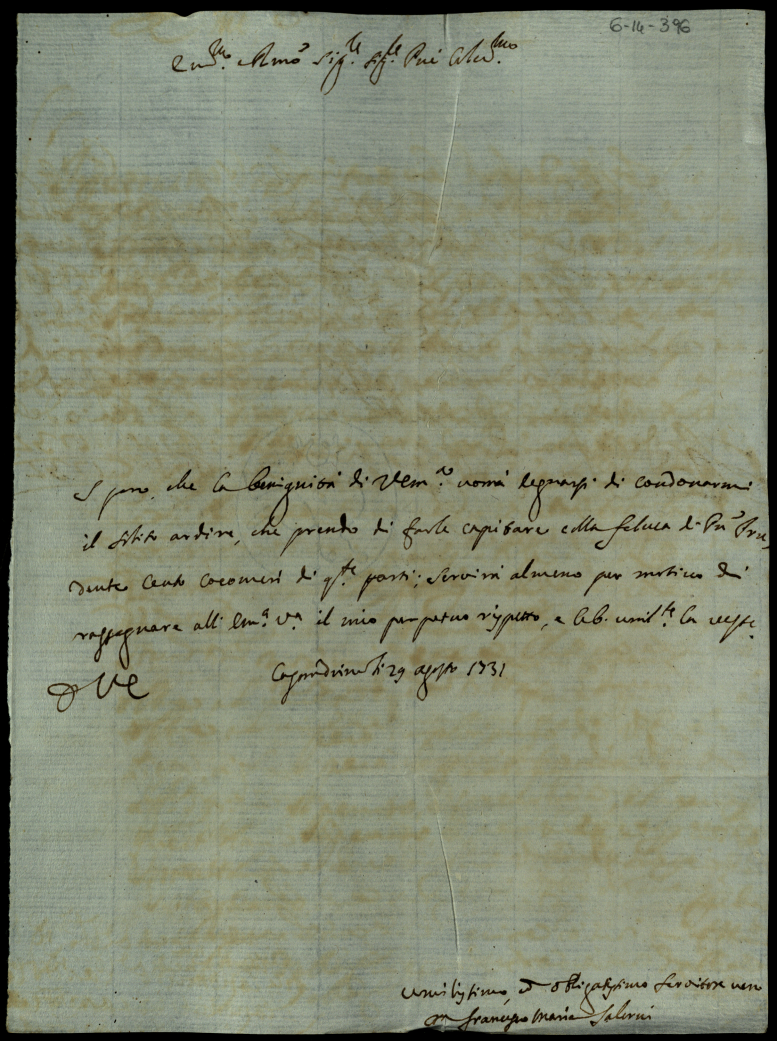 6-14-396
Em.mo e Rmo Sig.re Sig.re Pne Col.mo
Spero, che la benignità di VEm.a vorrà degnarsi di condonarmi
il solito ardire, che prendo di farle capitare colla feluca di Pn Pru-
dente cento cocomeri di q.te parti; servirà almeno per motivo di
rassegnare all' Em.a V.a il mio perpetuo rispetto, e le b. umil.te la veste.
D VE
li 29 agosto 1731
umilissimo, ed obligatissimo servitore vero
Francesco Maria Salerni